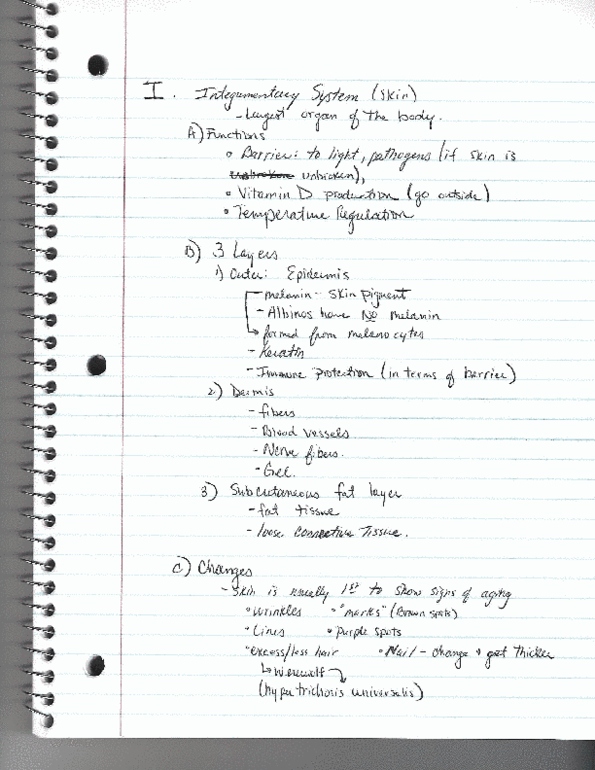 I. Integumentary System (skin)
- Largest organ of the body.
A) Functions
• Barrier: to light, pathogens (if skin is
unbroken unbroken),
• Vitamin D production (go outside)
• Temperature Regulation
B) 3 Layers
1) Outer: Epidermis
- melanin - skin pigment
- Albinos have NO melanin
→ formed from melanocytes
- Keratin
- Immune protection (in terms of barrier)
2) Dermis
- fibers
- Blood vessels
- Nerve fibers.
- Gel.
3) Subcutaneous fat layer
- fat tissue
- loose connective Tissue.
C) Changes
- Skin is usually 1st to show signs of aging
• Wrinkles • "marks" (Brown spots)
• Lines • Purple spots
• excess/less hair • Nail - change + get thicker
↳ Werewolf
(hypertrichosis universalis)